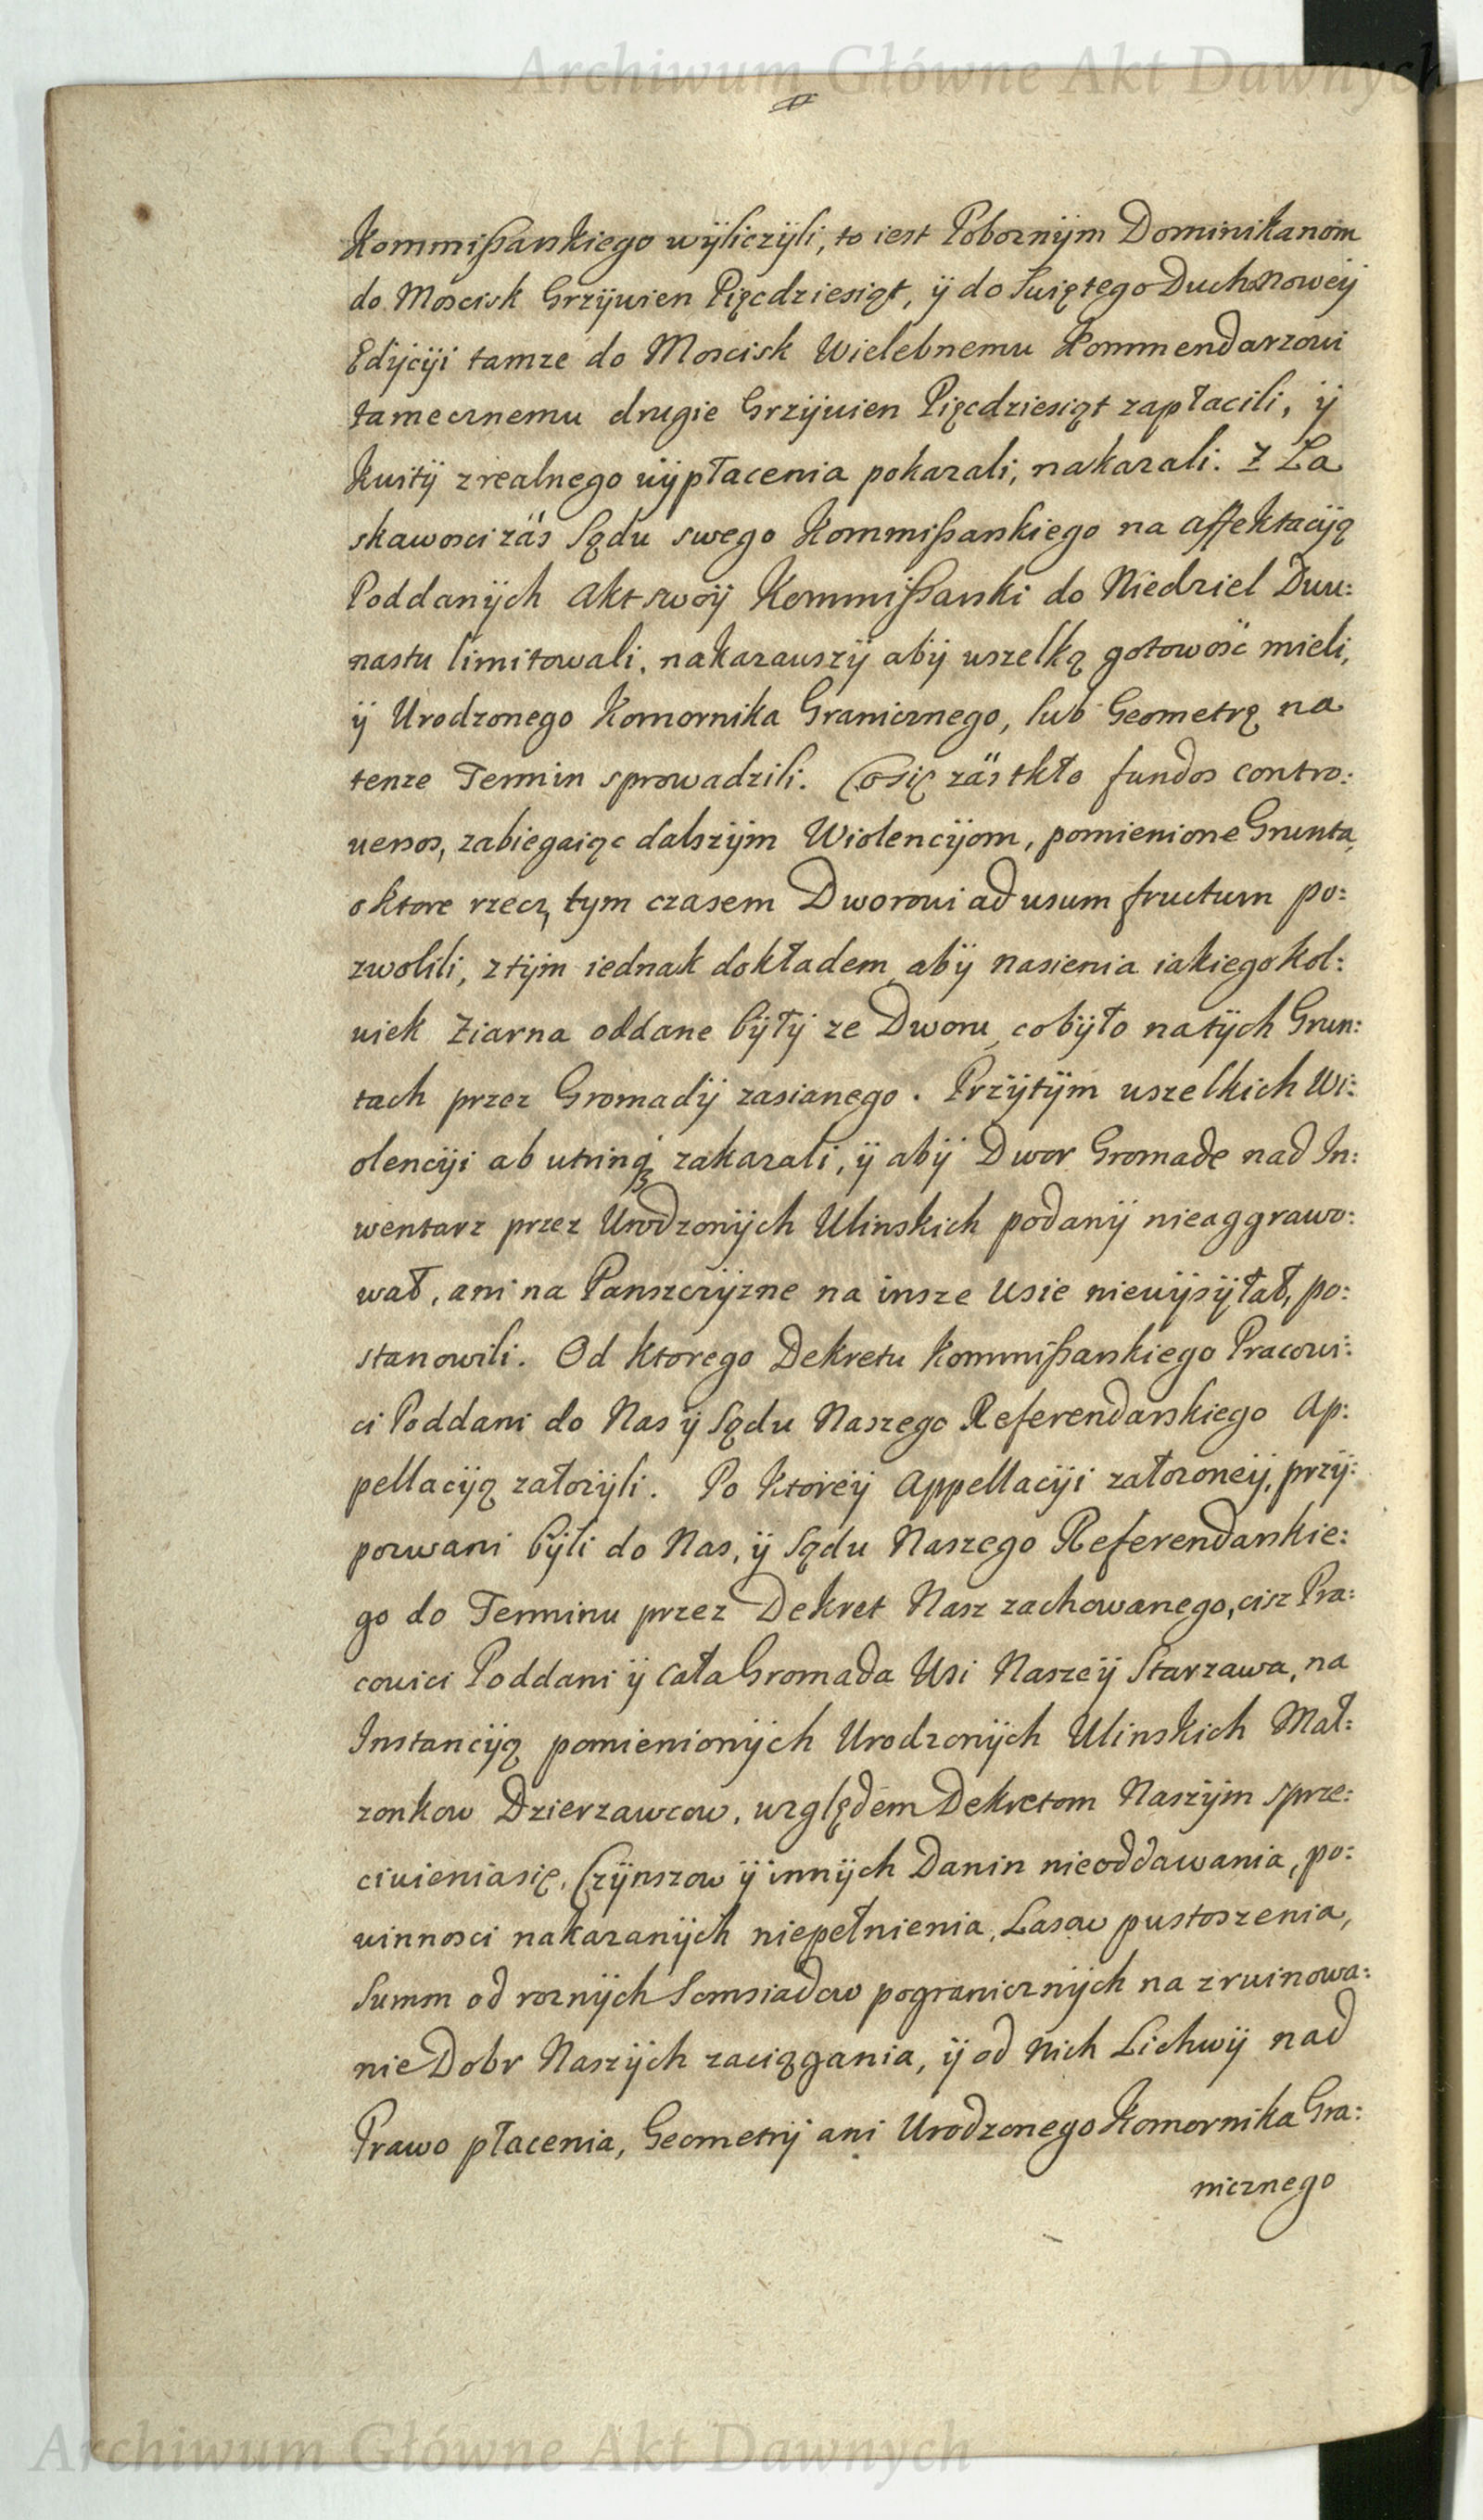 Archiwum Główne Akt Dawnych
Kommißarskiego wÿliczÿli, to iest Pobożnÿm Dominikanom
do Moscisk Grzÿwien Pięcdziesiąt, ÿ do Swiętego Ducha Noweÿ
Edÿcÿi tamze do Moscisk Wielebnemu Kommendarzowi
tamecznemu drugie Grzÿwien Pięcdziesiąt zapłacili, ÿ
Kwitÿ z realnego wÿpłacenia pokazali, nakazali. Z La
skawosci zás Sądu swego Kommißarskiego na affektacÿą
Poddanÿch Akt swoÿ Kommißarski do Niedziel Dwu:
nastu limitowali, nakazawszÿ abÿ wszelką gotowość mieli,
ÿ Urodzonego Komornika Granicznego, lub Geometrę na
tenze Termin sprowadzili. Co się zás tkło fundos contro:
versos, zabiegaiąc dalszÿm Wiolencÿom, pomienione Grunta,
o ktore rzecz, tym czasem Dworowi ad usum fructum po:
zwolili, z tÿm iednak dokładem, abÿ nasienia iakiegokol:
wiek Ziarna oddane bÿłÿ ze Dworu, co bÿło na tÿch Grun:
tach przez Gromadÿ zasianego. Przÿtÿm wszelkich Wi:
olencÿi ab utrinq₃ zakazali, ÿ abÿ Dwor Gromade nad In:
wentarz przez Urodzonÿch Ulinskich podanÿ nieaggrawo:
wał, ani na Panszczÿzne na insze Wsie niewÿsÿłał, po:
stanowili. Od ktorego Dekretu Kommißarskiego Pracowi:
ci Poddani do Nas ÿ Sądu Naszego Referendarskiego Ap:
pellacÿą załozÿli. Po ktoreÿ Appellacÿi załozoneÿ, przÿ:
pozwani bÿli do Nas, ÿ Sądu Naszego Referendarskie:
go do Terminu przez Dekret Nasz zachowanego, cisz Pra:
cowici Poddani ÿ cała Gromada Wsi Naszeÿ Starzawa, na
Instancÿą pomienionÿch Urodzonÿch Ulinskich Mał:
zonkow Dzierzawcow, względem Dekretom Naszÿm sprze:
ciwieniasię, Czÿnszow ÿ innÿch Danin nieoddawania, po:
winnosci nakazanÿch niepełnienia, Lasow pustoszenia,
Summ od roznÿch Somsiadow pogranicznÿch na zruinowa:
nie Dobr Naszÿch zaciągania, ÿ od nich Lichwÿ nad
Prawo płacenia, Geometrÿ ani Urodzonego Komornika Gra:
nicznego
Archiwum Główne Akt Dawnych